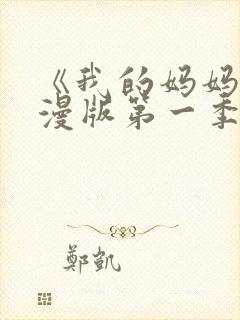 《我的妈妈
漫版第一季
鄭凱